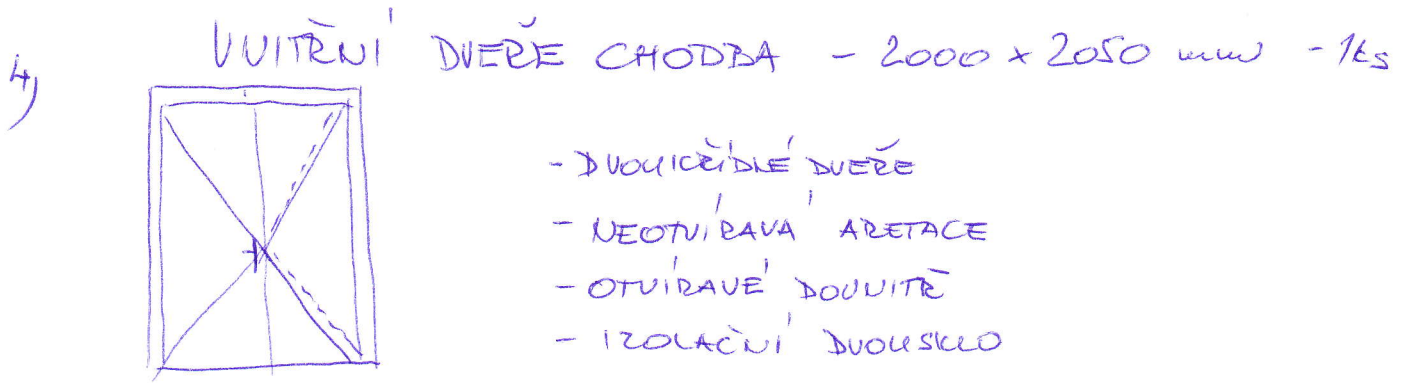 4) VNITŘNÍ DVEŘE CHODBA - 2000 x 2050 mm - 1ks
- DVOUKŘÍDLÉ DVEŘE
- NEOTVÍRAVÁ ARETACE
- OTVÍRAVÉ DOVNITŘ
- IZOLAČNÍ DVOUSKLO